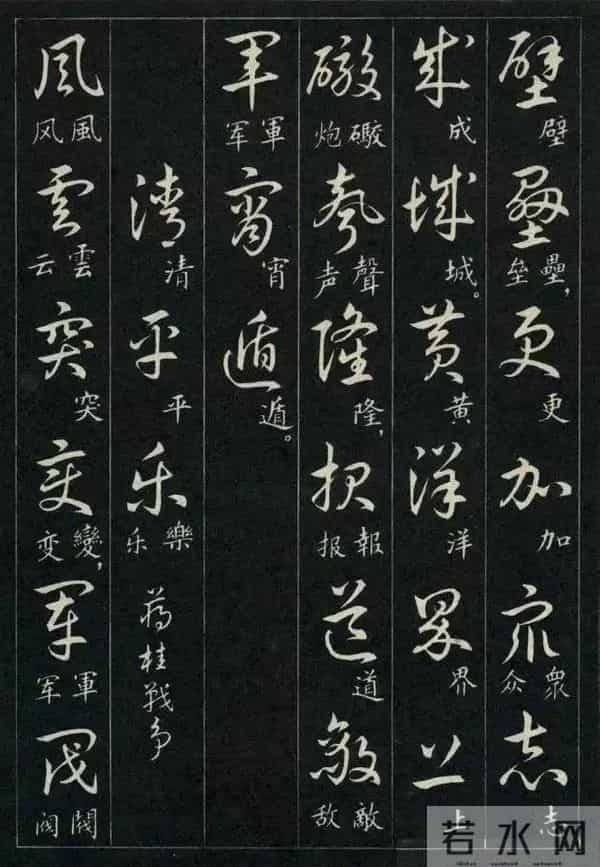 壁壁壘壘，垒更更加加衆衆众志志
成成城城。黄黄洋洋界界上上
礮礮炮聲聲声隆隆，報報报道道敵敵敌
軍軍军宵宵遁遁。
清清平平樂樂乐蒋桂戰争
風風风雲雲云突突變變，变軍軍军閥閥阀
若水网